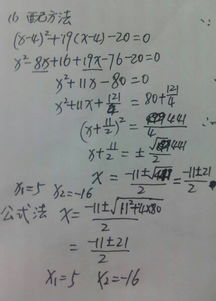 (1) 配方法
(x-4)²+19(x-4)-20=0
x²-8x+16+19x-76-20=0
x²+11x-80=0
x²+11x+121/4=80+121/4
(x+11/2)²=441/4
x+11/2=±√441/2
x=(-11±√441)/2=(-11±21)/2
x₁=5 x₂=-16
公式法 x=(-11±√(11²+4×80))/2
=(-11±21)/2
x₁=5 x₂=-16